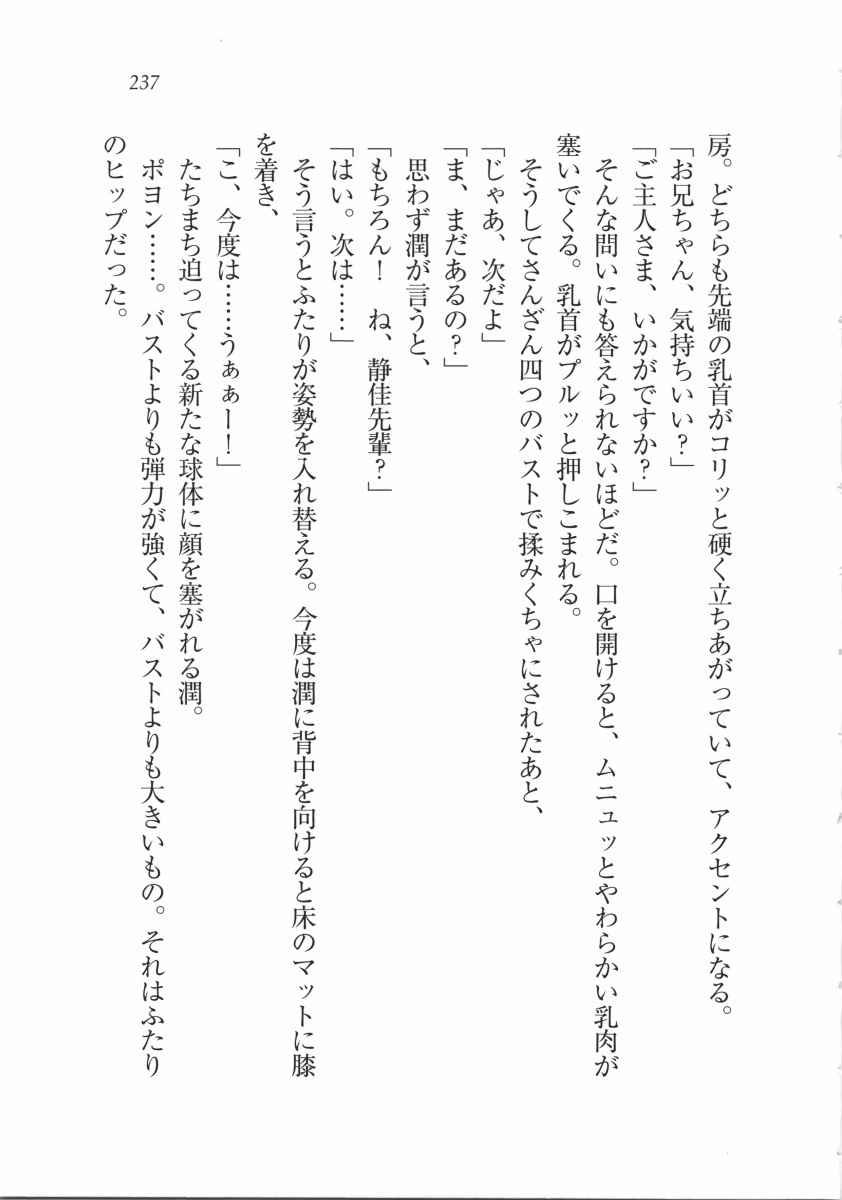 237
房。どちらも先端の乳首がコリッと硬く立ちあがっていて、アクセントになる。
「お兄ちゃん、気持ちいい?」
「ご主人さま、いかがですか?」
そんな問いにも答えられないほどだ。口を開けると、ムニュッとやわらかい乳肉が
塞いでくる。乳首がプルッと押しこまれる。
そうしてさんざん四つのバストで揉みくちゃにされたあと、
「じゃあ、次だよ」
「ま、まだあるの?」
思わず潤が言うと、
「もちろん! ね、静佳先輩?」
「はい。次は……」
そう言うとふたりが姿勢を入れ替える。今度は潤に背中を向けると床のマットに膝
を着き、
「こ、今度は……うぁぁー!」
たちまち迫ってくる新たな球体に顔を塞がれる潤。
ポヨン……。バストよりも弾力が強くて、バストよりも大きいもの。それはふたり
のヒップだった。